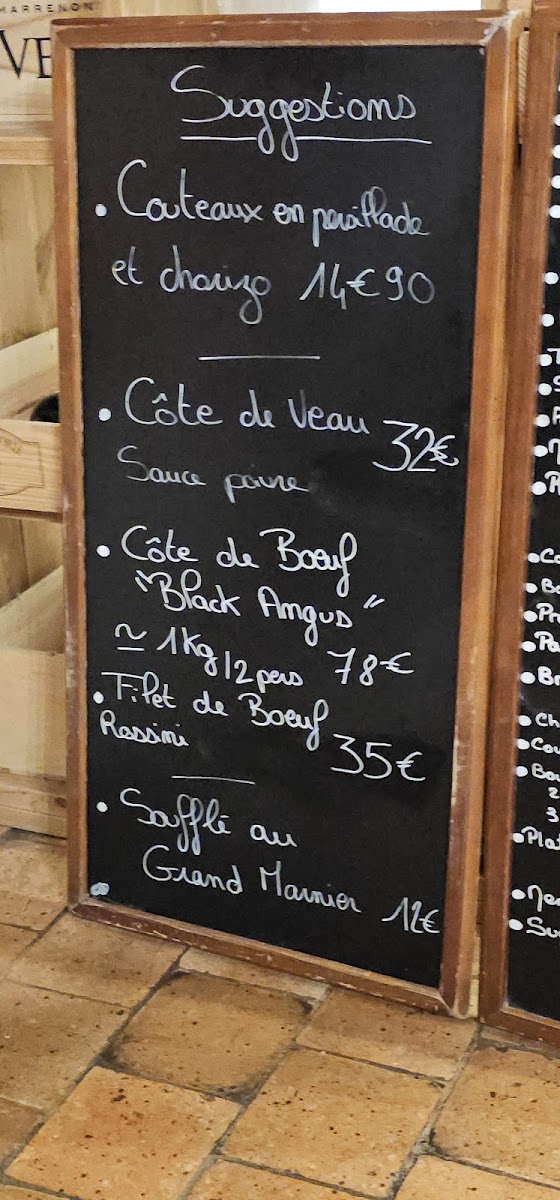 MARRENON
VE
Suggestions
• Couteaux en persillade
et chorizo 14€90
• Côte de Veau 32€
Sauce poivre
• Côte de Boeuf
"Black Angus"
≃ 1Kg/2pers 78€
• Filet de Boeuf
Rossini 35€
• Soufflé au
Grand Marnier 12€